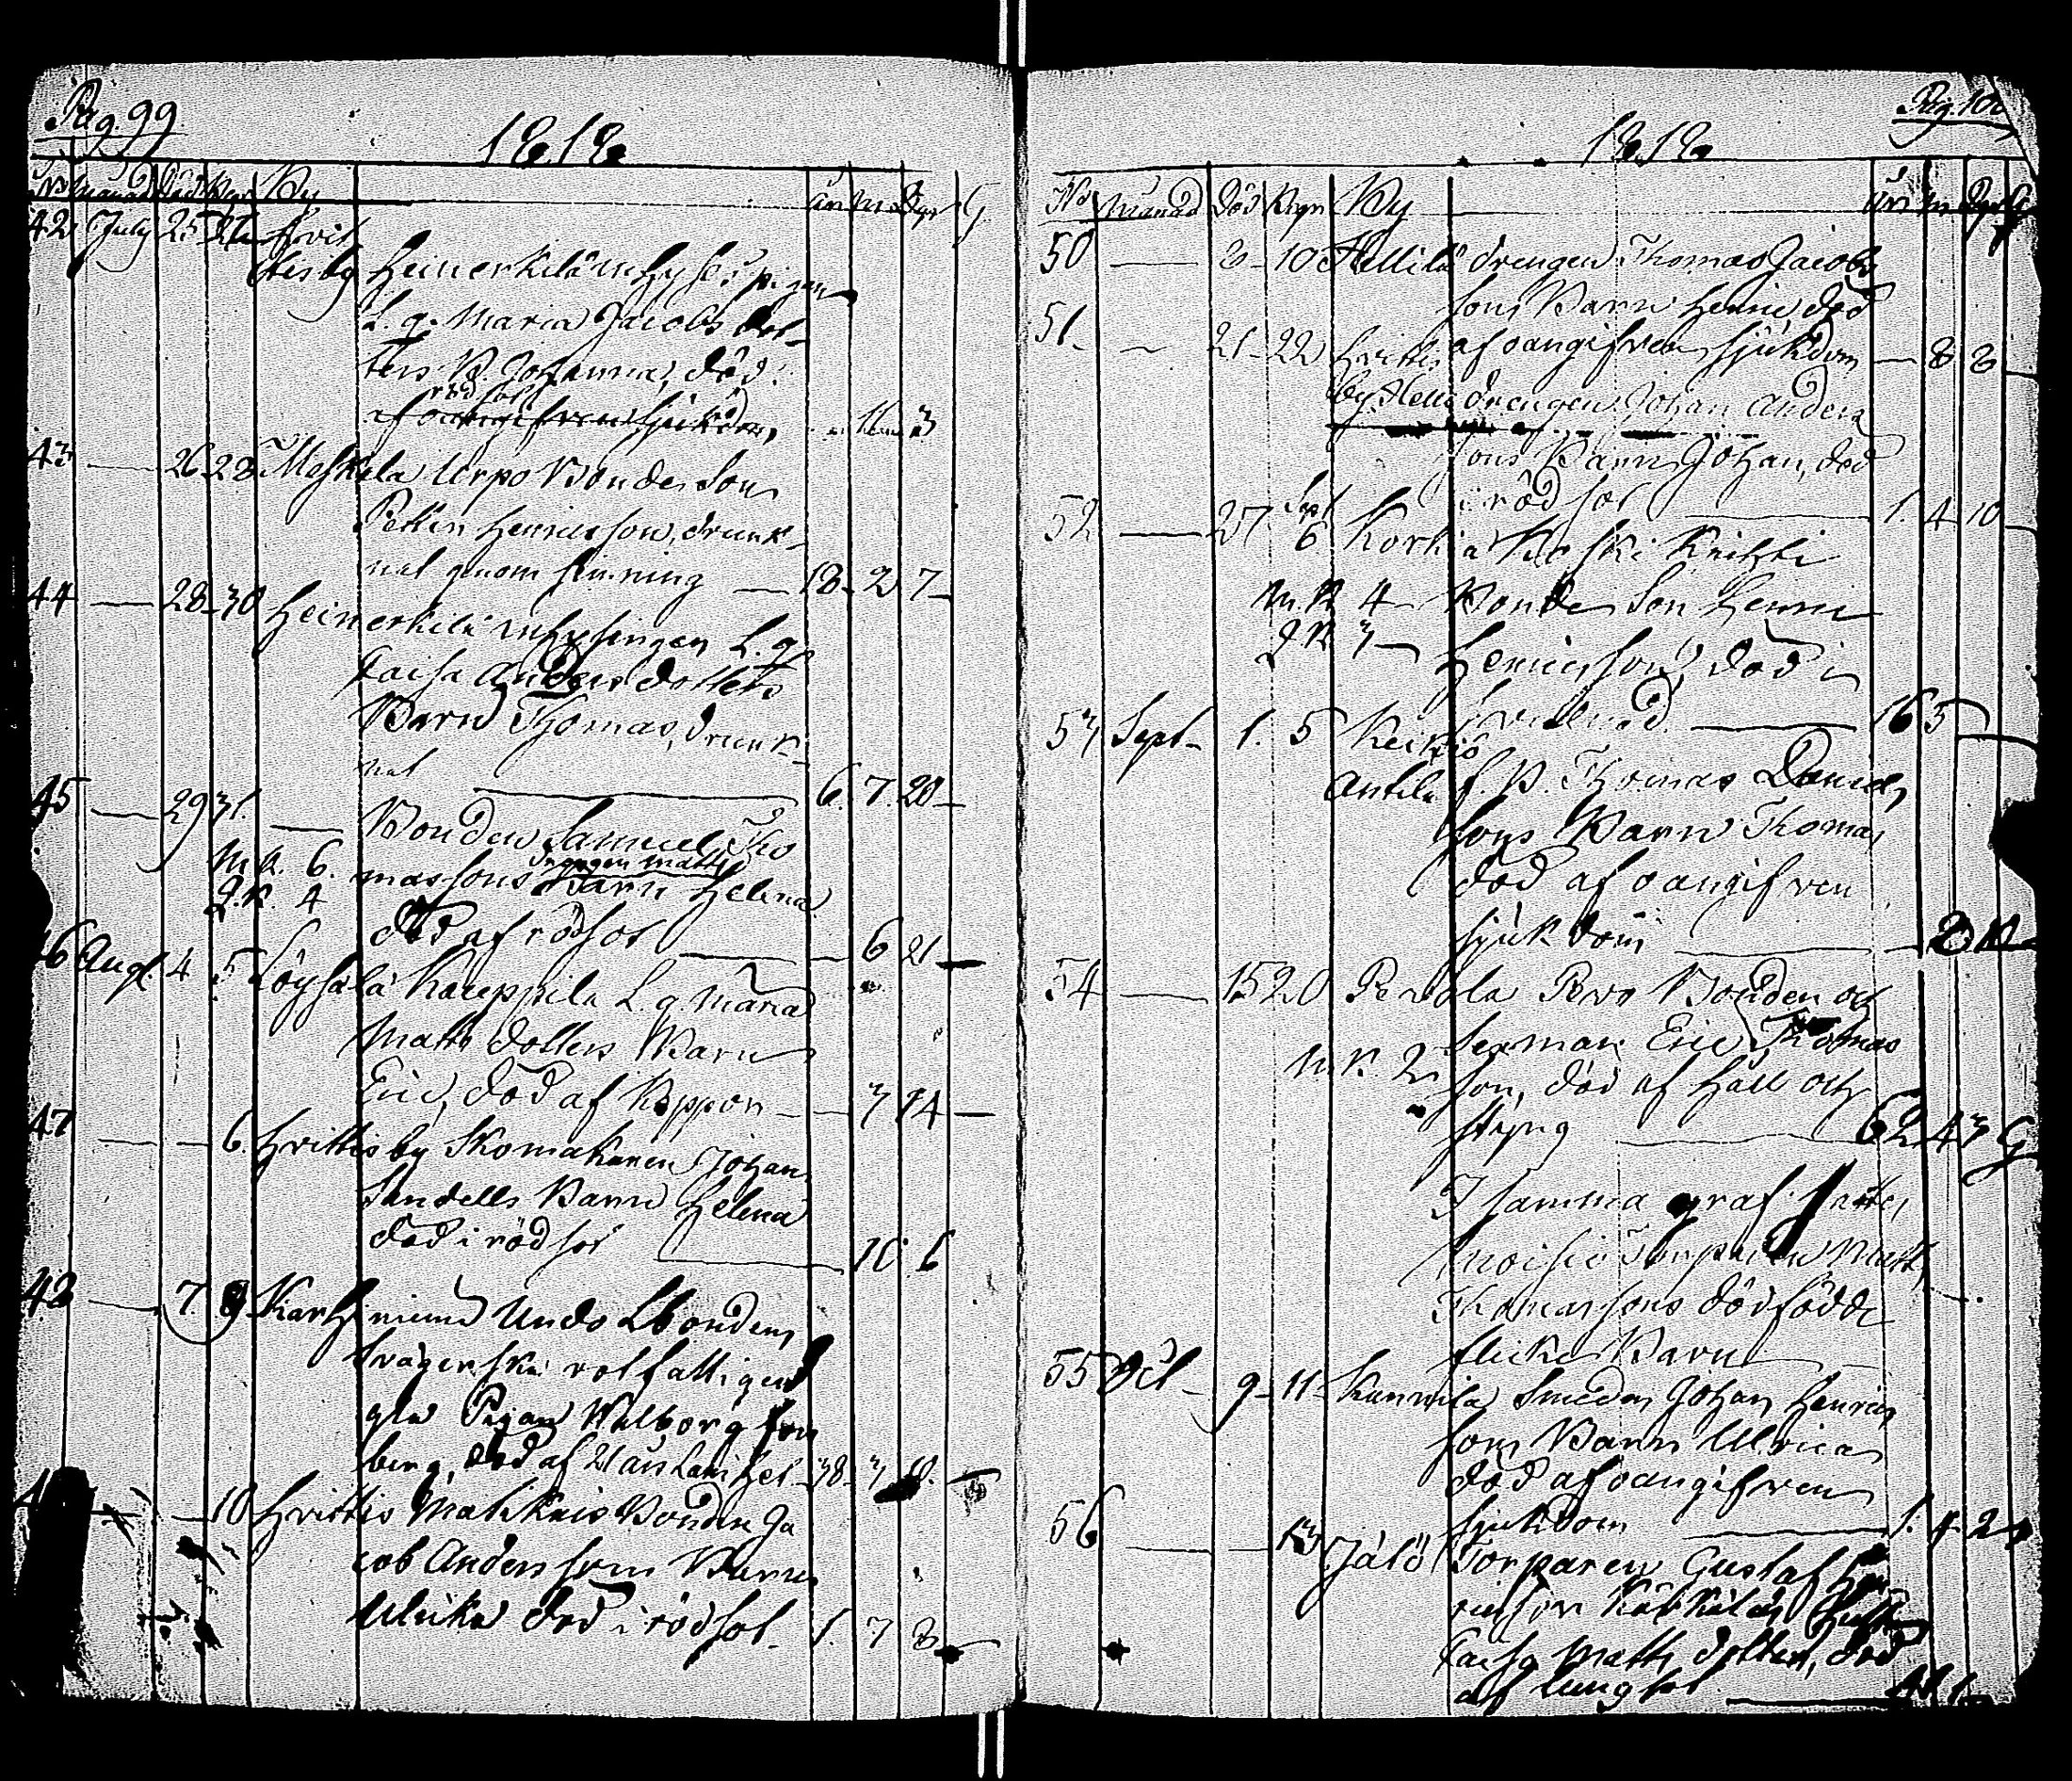 Pag. 99
1818
No Månad Död Begr By År M. Dgr G
42 July 25 Hvit
tisby Heinerkilä Inhyses pigan
L. q. Maria Jacobs dot
ters B. Johanna, död
rödsot
af oangifven sjukdom, 11 3
43 — 26 28 Meskala Urpo Bonde Son
Petter Henricsson, drunk-
nat genom simning — 18 2 7
44 — 28 30 Heinerkilä Inhysingen L. q.
Caisa Anders dotters
Barn Thomas, drunk-
nat — 6. 7. 20
45 — 29 31. — Bonden Samuel Tho
Drängen Matts
M.K. 6. massons Barn Helena
Q.K. 4
död af rödsot — 6 21 —
46 Augt. 4 5 Löysälä Kareppila L. q. Maria
Matts dotters Barn
Eric, död af Koppor — 3 14 —
47 — — 6. Hvittisby Skomakaren Johan
Sandells Barn Helena
död i rödsot — 10 6
48 — 7 9 Karhiniemi Undo Lbonden
Svägerska rotfattigen
gla Pigan Walborg
berg, död af 38 3
— 10 Hvittis Mahkais Bonden Ja
cob Anderssons Barn
Ulrika död i rödsot 1. 7 8
Pag. 100
1818
No Månad Död Begr By År M Dgr G
50 — 8 10 Hellilä drengen Thomas Jacobs
sons Barn Henric död
af oangifven sjukdom — 8 8
51 — 21 22 Hvittis
by Helle drengen Johan Anders
sons Barn Johan, död
i rödsot — 1. 4 10
52 — 27 Sept
6 Korkia Koski Knihti
M.K. 4 — Bonde Son Henric
Q.K 3 — Henricsson, död i
— 16 5
53 Sept 1. 5 Keikyö
Antila f. B. Thomas Daniels
sons Barn Thomas
död af oangifven
sjukdom —
54 — 15 20 Pendola Bonden och
Sexman Eric Thomas
M.K. 2 son, död af håll och
styng — 62 4 3 G
I samma graf sattes
Moisio Torparen Matts
Thomassons dödfödde
flicke Barn —
55 Oct 9 11 Kunnila Smeden Johan Henrics
sons Barn Ulrica
död af oangifven
sjukdom — 1. 4 2
56 — — 13 Jalo Torparen Gustaf Hen
ricsson Hustru
Caisa Matts dotter, död
af lungsot —